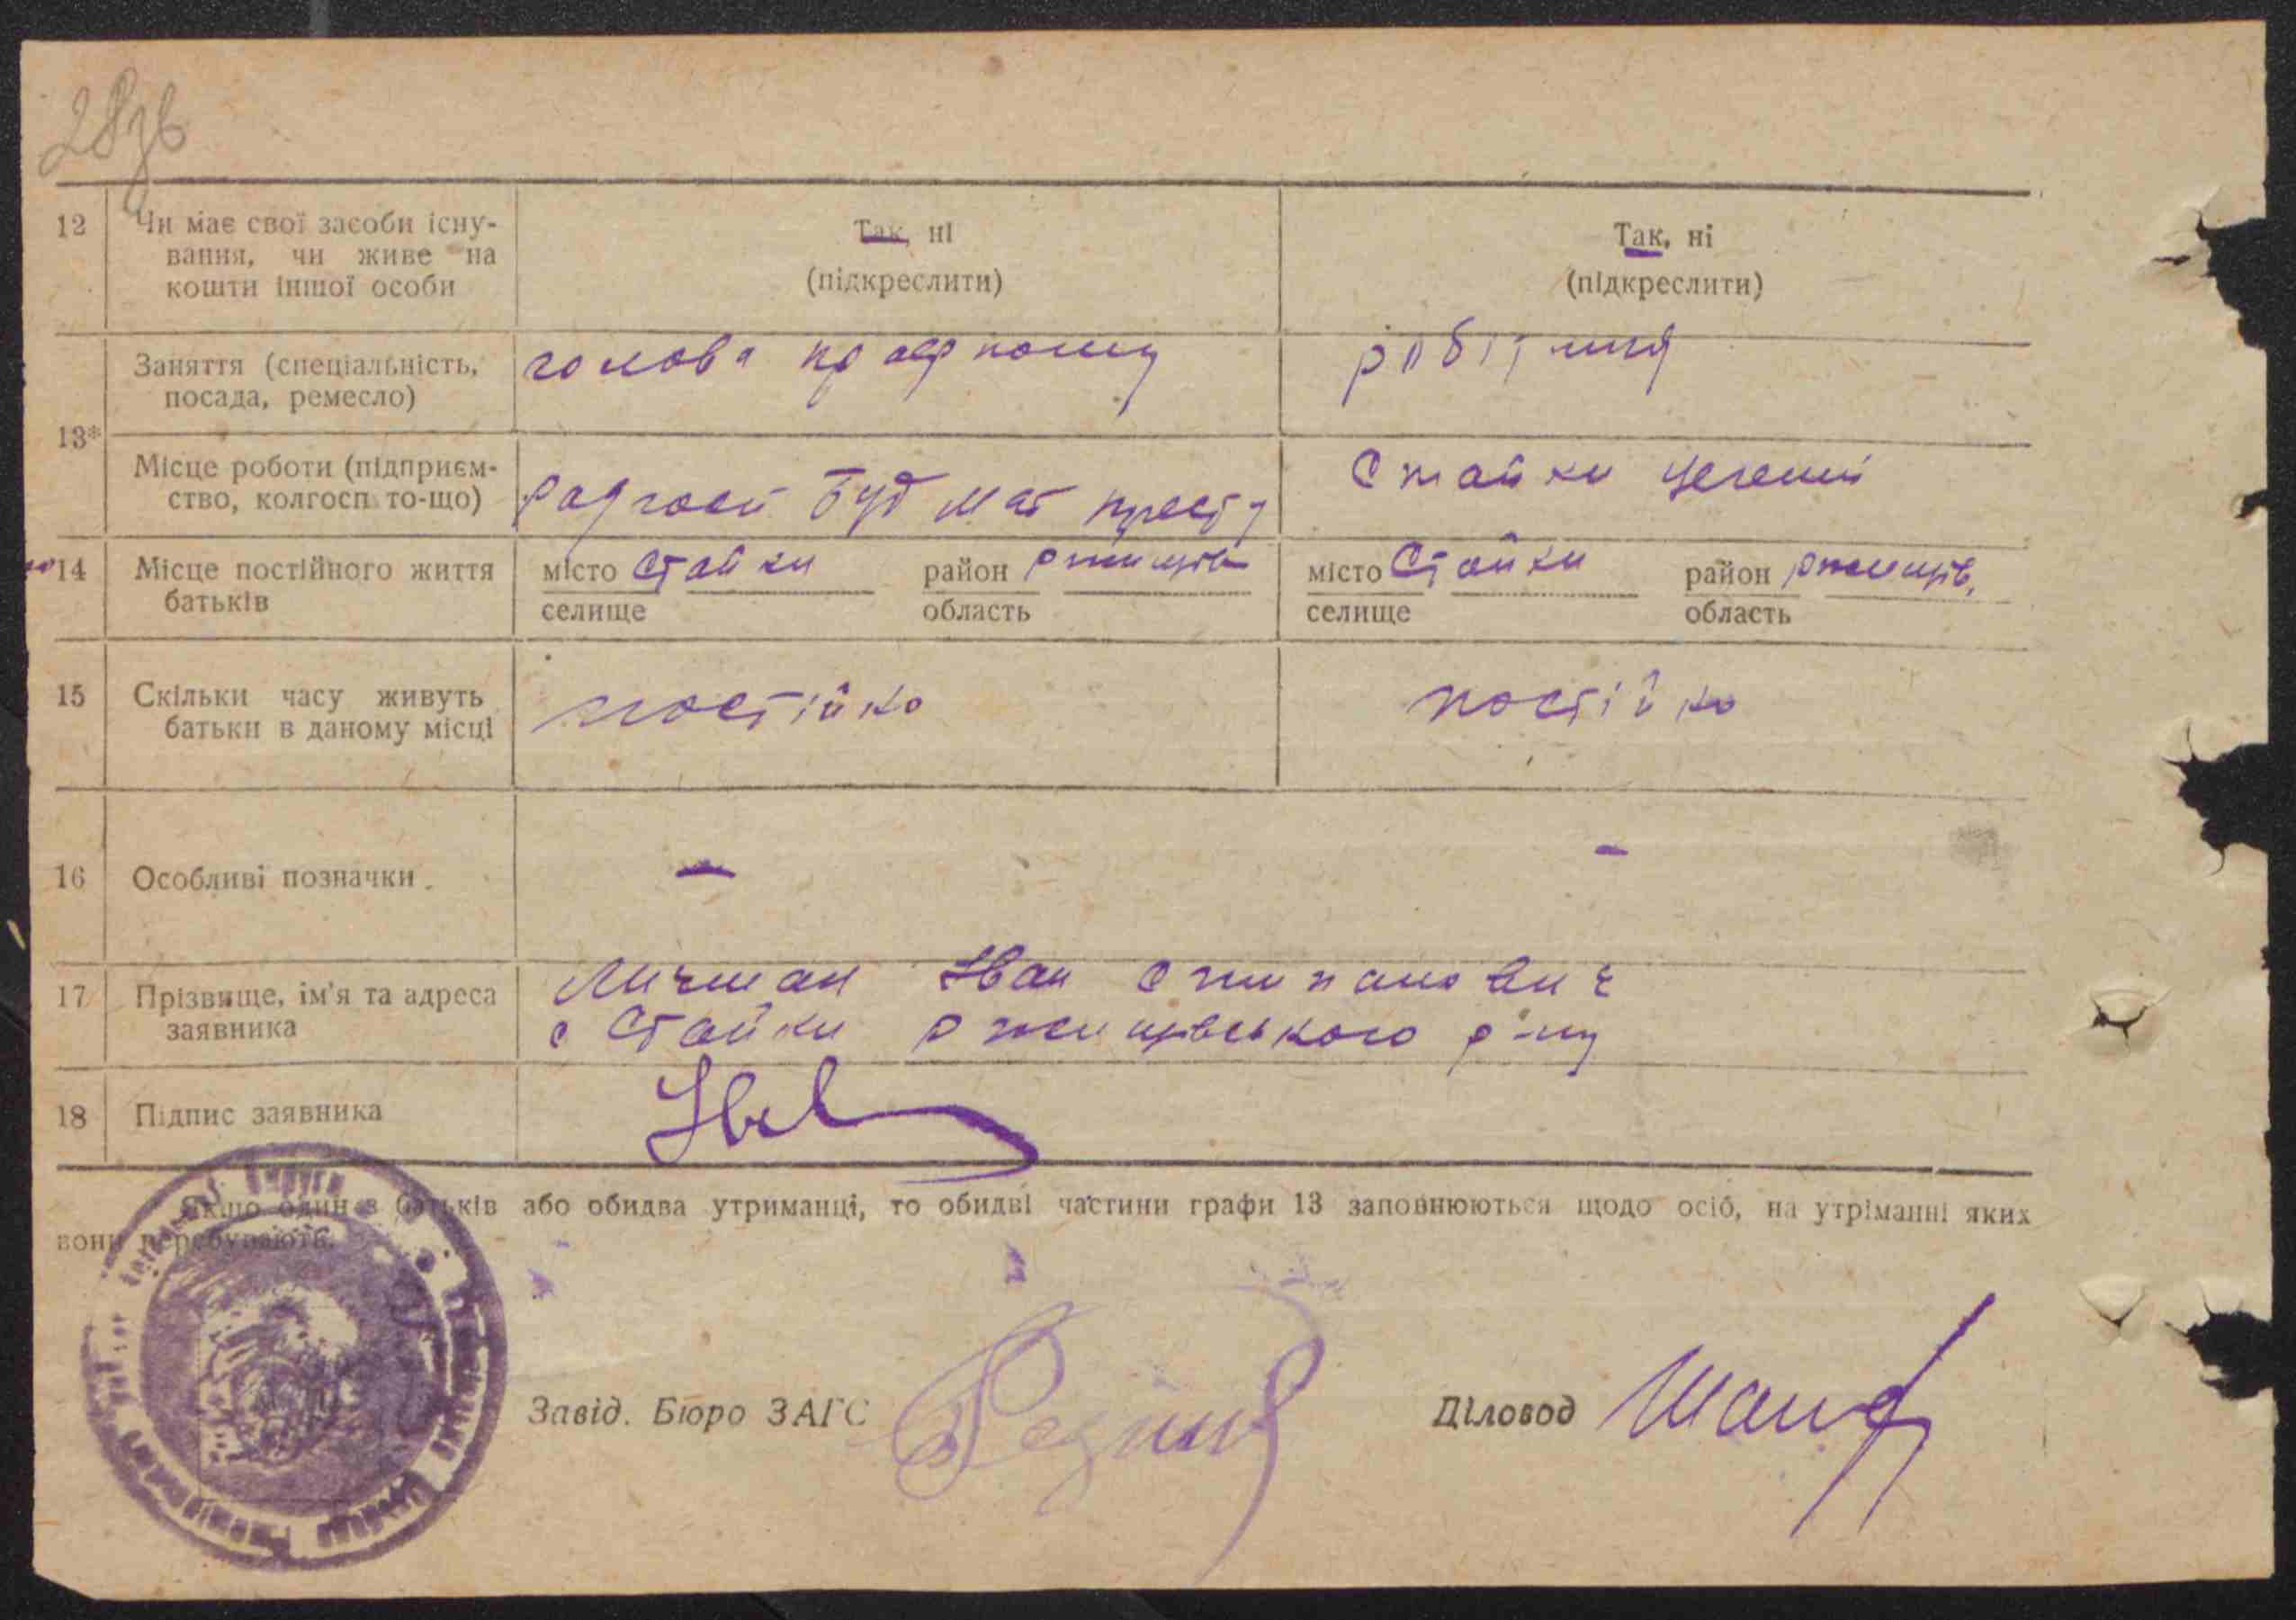 28зв
12 Чи має свої засоби існу- Так, ні Так, ні
вання, чи живе на (підкреслити) (підкреслити)
кошти іншої особи
13* Заняття (спеціальність, голова робітниця
посада, ремесло)
Місце роботи (підприєм- Радгосп Буд мат тресту Стайки цегельні
ство, колгосп то-що)
14 Місце постійного життя місто Стайки район Ржищів місто Стайки район Ржищів,
батьків селище область селище область
15 Скільки часу живуть постійно постійно
батьки в даному місці
16 Особливі позначки. – –
17 Прізвище, ім'я та адреса Личман Іван Степанович
заявника с Стайки Ржищівського р-ну
18 Підпис заявника
Якщо один з батьків або обидва утриманці, то обидві частини графи 13 заповнюються щодо осіб, на утріманні яких
вони перебувають.
Завід. Бюро ЗАГС Діловод